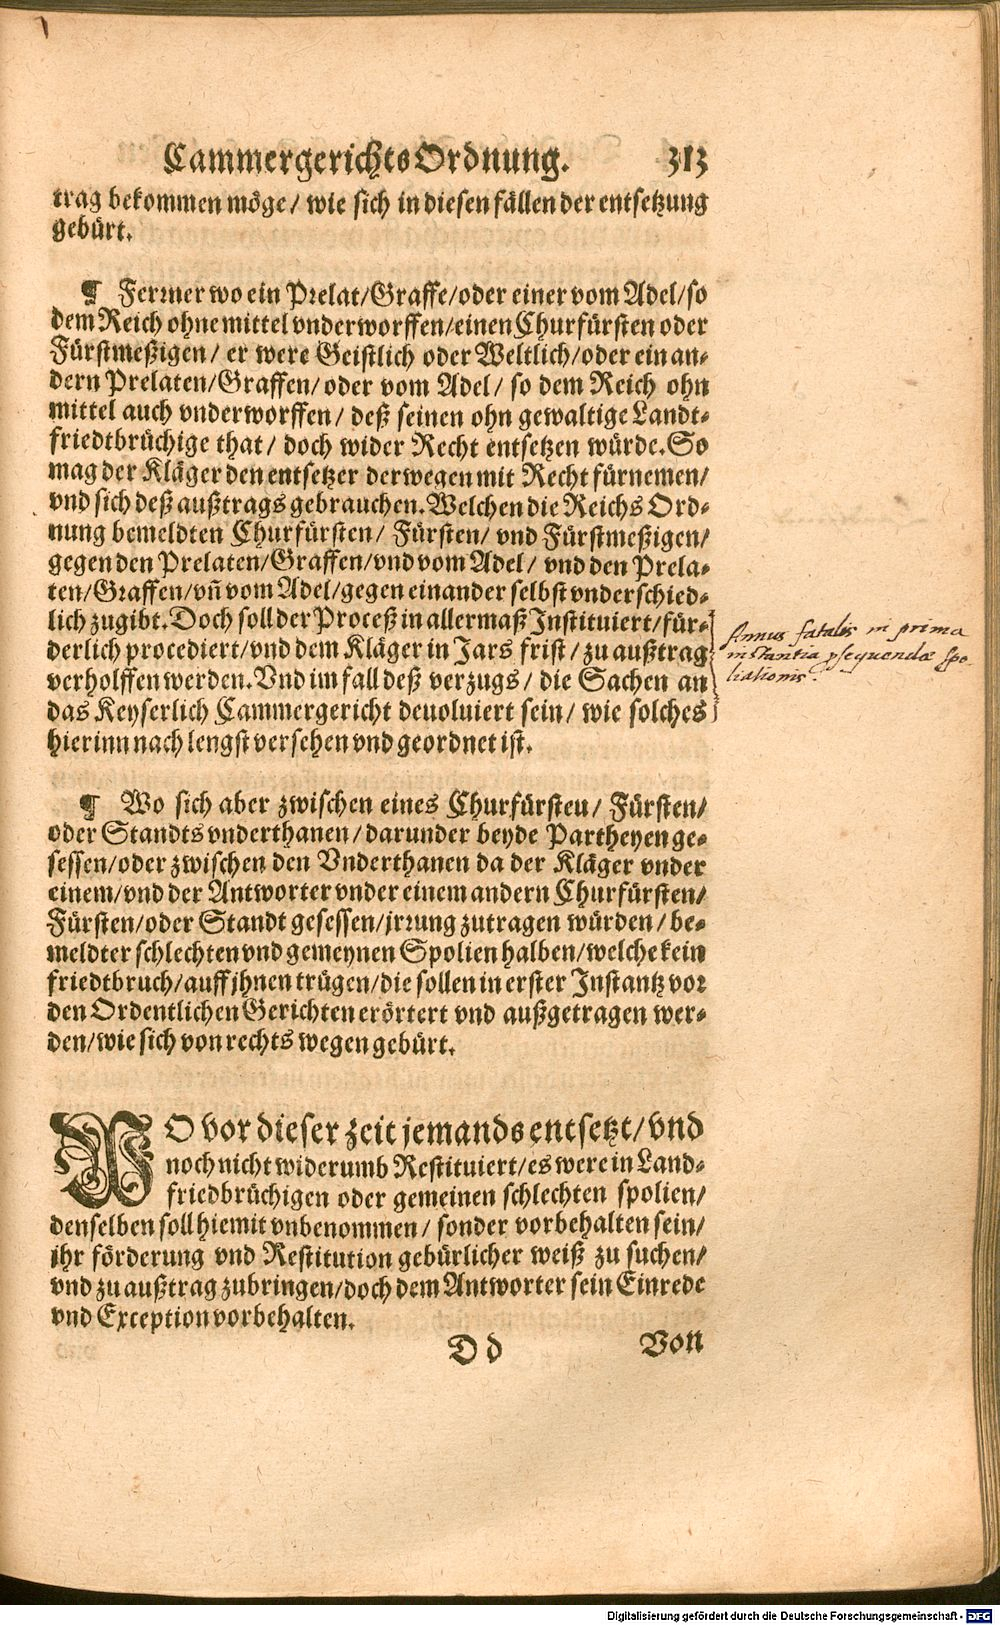 CammergerichtsOrdnung. 313
trag bekommen möge/ wie sich in diesen fällen der entsetzung
gebürt.
¶ Ferrner wo ein Prelat/Graffe/oder einer vom Adel/so
dem Reich ohne mittel vnderworffen/einen Churfürsten oder
Fürstmeßigen/ er were Geistlich oder Weltlich/oder ein an-
dern Prelaten/Graffen/ oder vom Adel/ so dem Reich ohn
mittel auch vnderworffen/ deß seinen ohn gewaltige Landt-
friedtbrüchige that/ doch wider Recht entsetzen würde. So
mag der Kläger den entsetzer derwegen mit Recht fürnemen/
vnd sich deß außtrags gebrauchen. Welchen die Reichs Ord-
nung bemeldten Churfürsten/ Fürsten/ vnd Fürstmeßigen/
gegen den Prelaten/Graffen/vnd vom Adel/ vnd den Prela-
ten/Graffen/vñ vom Adel/gegen einander selbst vnderschied-
lich zugibt. Doch soll der Proceß in allermaß Instituiert/für-
derlich procediert/vnd dem Kläger in Jars frist/ zu außtrag
verholffen werden. Vnd im fall deß verzugs/ die Sachen an
das Keyserlich Cammergericht deuoluiert sein/ wie solches
hierinn nach lengst versehen vnd geordnet ist.
Annus fatalis in prima
instantia psequendæ spo-
liationis.
¶ Wo sich aber zwischen eines Churfürsten/ Fürsten/
oder Standts vnderthanen/darunder beyde Partheyen ge-
sessen/oder zwischen den Vnderthanen da der Kläger vnder
einem/vnd der Antworter vnder einem andern Churfürsten/
Fürsten/oder Standt gesessen/jrrung zutragen würden/ be-
meldter schlechten vnd gemeynen Spolien halben/welche kein
friedtbruch/auff jhnen trügen/die sollen in erster Instantz vor
den Ordentlichen Gerichten erörtert vnd außgetragen wer-
den/wie sich von rechts wegen gebürt.
WO vor dieser zeit jemands entsetzt/vnd
noch nicht widerumb Restituiert/es were in Land-
friedbrüchigen oder gemeinen schlechten spolien/
denselben soll hiemit vnbenommen/ sonder vorbehalten sein/
jhr förderung vnd Restitution gebürlicher weiß zu suchen/
vnd zu außtrag zubringen/doch dem Antworter sein Einrede
vnd Exception vorbehalten.
D d Von
Digitalisierung gefördert durch die Deutsche Forschungsgemeinschaft - DFG